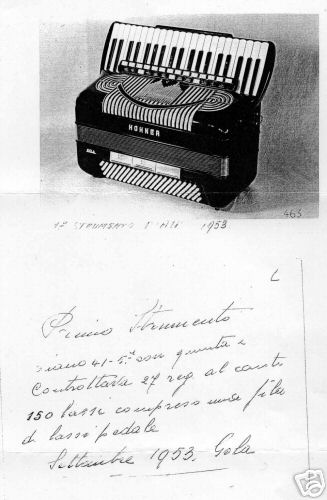 HOHNER
463
1° STRUMENTO 1953
L
Primo Strumento
piano 41-5ª con quinta e
Controttava 27 reg al canto
150 bassi compreso una fila
di bassi pedale
Settembre 1953. Gola
eb